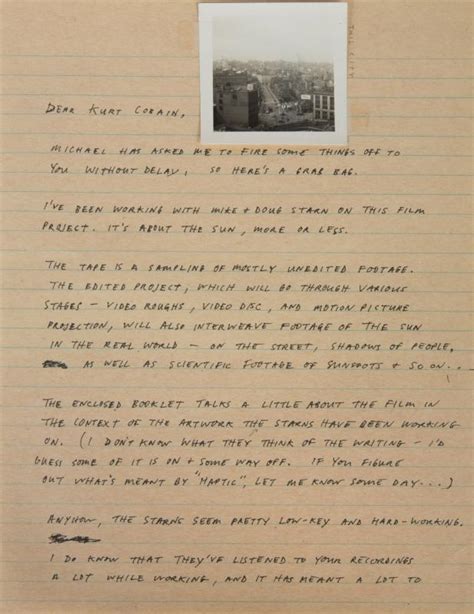 DEAR KURT COBAIN,
MICHAEL HAS ASKED ME TO FIRE SOME THINGS OFF TO
YOU WITHOUT DELAY, SO HERE'S A GRAB BAG.
I'VE BEEN WORKING WITH MIKE + DOUG STARN ON THIS FILM
PROJECT. IT'S ABOUT THE SUN, MORE OR LESS.
THE TAPE IS A SAMPLING OF MOSTLY UNEDITED FOOTAGE.
THE EDITED PROJECT, WHICH WILL GO THROUGH VARIOUS
STAGES – VIDEO ROUGHS, VIDEO DISC, AND MOTION PICTURE
PROJECTION, WILL ALSO INTERWEAVE FOOTAGE OF THE SUN
IN THE REAL WORLD – ON THE STREET, SHADOWS OF PEOPLE,
AS WELL AS SCIENTIFIC FOOTAGE OF SUNSPOTS + SO ON...
THE ENCLOSED BOOKLET TALKS A LITTLE ABOUT THE FILM IN
THE CONTEXT OF THE ARTWORK THE STARNS HAVE BEEN WORKING
ON. (I DON'T KNOW WHAT THEY THINK OF THE WRITING – I'D
GUESS SOME OF IT IS ON + SOME WAY OFF. IF YOU FIGURE
OUT WHAT'S MEANT BY "HAPTIC", LET ME KNOW SOME DAY...)
ANYHOW, THE STARNS SEEM PRETTY LOW-KEY AND HARD-WORKING.
I DO KNOW THAT THEY'VE LISTENED TO YOUR RECORDINGS
A LOT WHILE WORKING, AND IT HAS MEANT A LOT TO